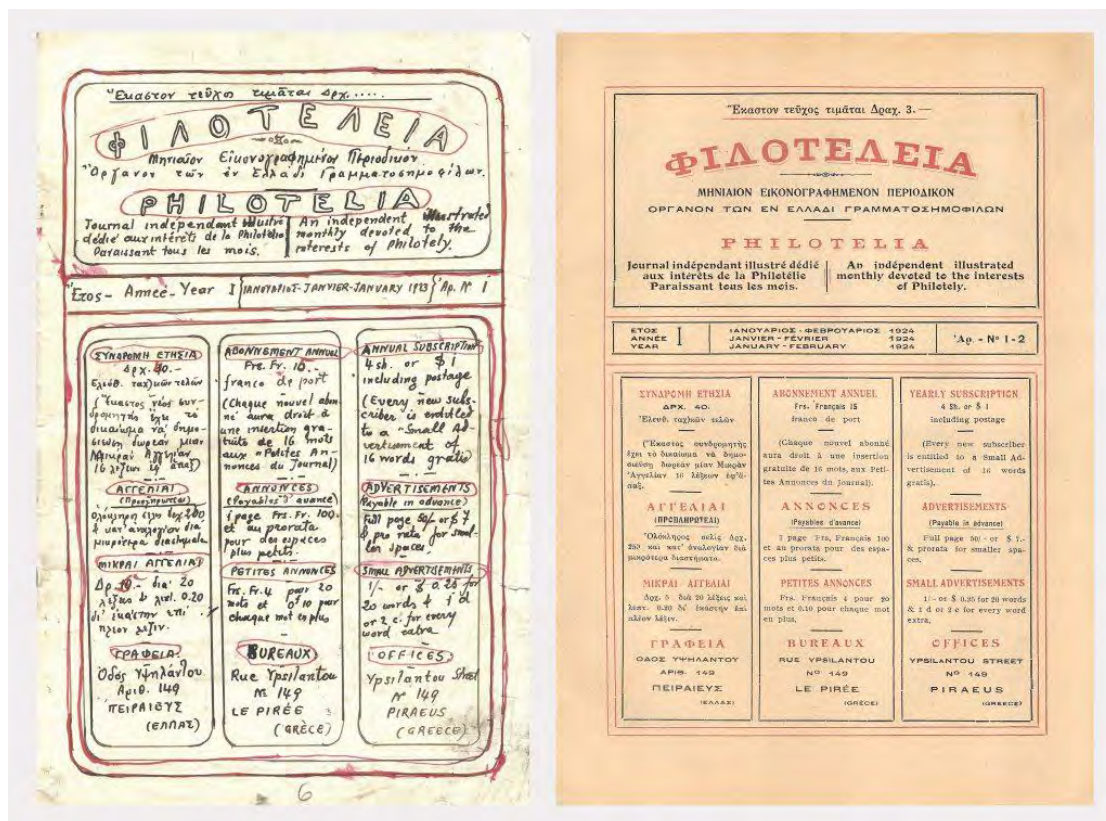 Ἕκαστον τεῦχος τιμᾶται Δρχ.....
ΦΙΛΟΤΕΛΕΙΑ
Μηνιαῖον Εἰκονογραφημένον Περιοδικόν
Ὄργανον τῶν ἐν Ἑλλάδι Γραμματοσημοφίλων.
PHILOTELIA
Journal independant illustré
dédié aux intérêts de la Philotélie
Paraissant tous les mois.
An independent illustrated
monthly devoted to the
interests of Philotely.
Ἔτος - Année - Year I
ΙΑΝΟΥΑΡΙΟΣ-JANVIER-JANUARY 1923
Ἀρ. Nº 1
ΣΥΝΔΡΟΜΗ ΕΤΗΣΙΑ
Δρχ. 40.-
Ἐλευθ. ταχ)κῶν τελῶν
(Ἕκαστος νέος συν-
δρομητής ἔχει τὸ
δικαίωμα νὰ δημο-
σιεύση δωρεὰν μίαν
Μικρὰν Ἀγγελίαν
16 λέξεων ἐφ' ἅπαξ)
ΑΓΓΕΛΙΑΙ
(Προπληρωτέαι)
Ὁλόκληρη σελὶς δρχ 200
& κατ' ἀναλογίαν διὰ
μικρότερα διαστήματα
ΜΙΚΡΑΙ ΑΓΓΕΛΙΑΙ
Δρ. 10.- διὰ 20
λέξεις & λεπτ. 0.20
δι' ἑκάστην ἐπὶ
πλέον λέξιν.
ΓΡΑΦΕΙΑ
Ὁδὸς Ὑψηλάντου
Ἀριθ. 149
ΠΕΙΡΑΙΕΥΣ
(ΕΛΛΑΣ)
ABONNEMENT ANNUEL
Frs. Fr. 15.
franco de port
(Chaque nouvel abon
né aura droit à
une insertion gra-
tuite de 16 mots
aux "Petites An-
nonces du Journal)
ANNONCES
(Payables d'avance)
1 page Frs. Fr. 100.
et au prorata
pour des espaces
plus petits.
PETITES ANNONCES
Frs. Fr. 4 pour 20
mots et 0'10 pour
chaque mot en plus
BUREAUX
Rue Ypsilantou
Nº 149
LE PIRÉE
(GRÈCE)
ANNUAL SUBSCRIPTION
4 sh. or $ 1
including postage
(Every new subs-
criber is entitled
to a "Small Ad-
vertisment of
16 words gratis)
ADVERTISEMENTS
(Payable in advance)
Full page 50/- or $ 7
& pro rata for smal-
ler spaces.
SMALL ADVERTISEMENTS
1/- or $ 0.25 for
20 words & 1 d
or 2 c. for every
word extra
OFFICES
Ypsilantou Street
Nº 149
PIRAEUS
(GREECE)
6
Ἕκαστον τεῦχος τιμᾶται Δραχ. 3.—
ΦΙΛΟΤΕΛΕΙΑ
ΜΗΝΙΑΙΟΝ ΕΙΚΟΝΟΓΡΑΦΗΜΕΝΟΝ ΠΕΡΙΟΔΙΚΟΝ
ΟΡΓΑΝΟΝ ΤΩΝ ΕΝ ΕΛΛΑΔΙ ΓΡΑΜΜΑΤΟΣΗΜΟΦΙΛΩΝ
PHILOTELIA
Journal indépendant illustré dédié
aux intérêts de la Philotélie
Paraissant tous les mois.
An indépendent illustrated
monthly devoted to the interests
of Philotely.
ΕΤΟΣ
ANNÉE
YEAR
I
ΙΑΝΟΥΑΡΙΟΣ - ΦΕΒΡΟΥΑΡΙΟΣ 1924
JANVIER - FÉVRIER 1924
JANUARY - FEBRUARY 1924
Ἀρ. - Nº 1 - 2
ΣΥΝΔΡΟΜΗ ΕΤΗΣΙΑ
ΔΡΧ. 40.
Ἐλευθ. ταχ)κῶν τελῶν
(Ἕκαστος συνδρομητὴς
ἔχει τὸ δικαίωμα νὰ δημο-
σιεύση δωρεὰν μίαν Μικρὰν
Ἀγγελίαν 16 λέξεων ἐφ'ἅ-
παξ.
ΑΓΓΕΛΙΑΙ
(ΠΡΟΠΛΗΡΩΤΕΑΙ)
Ὁλόκληρος σελὶς Δρχ.
250 καὶ κατ' ἀναλογίαν διὰ
μικρότερα διαστήματα.
ΜΙΚΡΑΙ ΑΓΓΕΛΙΑΙ
Δρχ. 5 διὰ 20 λέξεις καὶ
λεπτ. 0.20 δι' ἑκάστην ἐπὶ
πλέον λέξιν.
ΓΡΑΦΕΙΑ
ΟΔΟΣ ΥΨΗΛΑΝΤΟΥ
ΑΡΙΘ. 149
ΠΕΙΡΑΙΕΥΣ
(ΕΛΛΑΣ)
ABONNEMENT ANNUEL
Frs. Français 15
franco de port
(Chaque nouvel abonné
aura droit à une insertion
gratuite de 16 mots, aux Peti-
tes Annonces du Journal).
ANNONCES
(Payables d'avance)
1 page Frs, Français 100
et au prorata pour des espa-
ces plus petits.
PETITES ANNONCES
Frs. Français 4 pour 20
mots et 0.10 pour chaque mot
en plus.
BUREAUX
RUE YPSILANTOU
Nº 149
LE PIRÉE
(GRÈCE)
YEARLY SUBSCRIPTION
4 Sh. or $ 1
including postage
(Every new subscriber
is entitled to a Small Ad-
vertisement of 16 words
gratis).
ADVERTISEMENTS
(Payable in advance)
Full page 50/- or $ 7.-
& prorata for smaller spa-
ces.
SMALL ADVERTISEMENTS
1/- or $ 0.25 for 20 words
& 1 d or 2 c for every word
extra.
OFFICES
YPSILANTOU STREET
Nº 149
PIRAEUS
(GREECE)